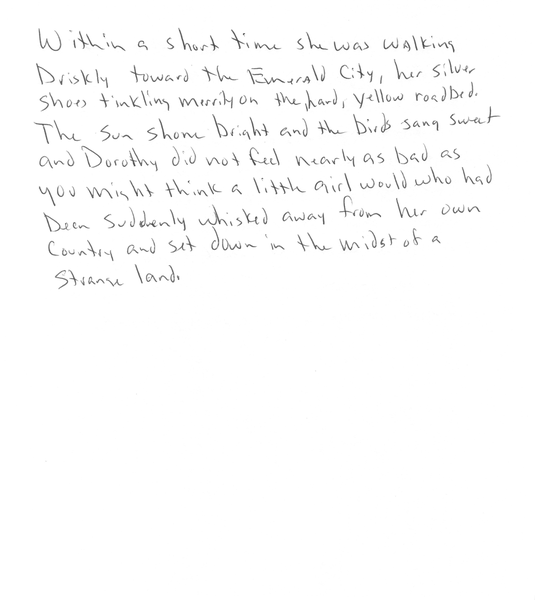 Within a short time she was walking
briskly toward the Emerald City, her silver
shoes tinkling merrily on the hard, yellow roadbed.
The sun shone bright and the birds sang sweet
and Dorothy did not feel nearly as bad as
you might think a little girl would who had
been suddenly whisked away from her own
Country and set down in the midst of a
Strange land.